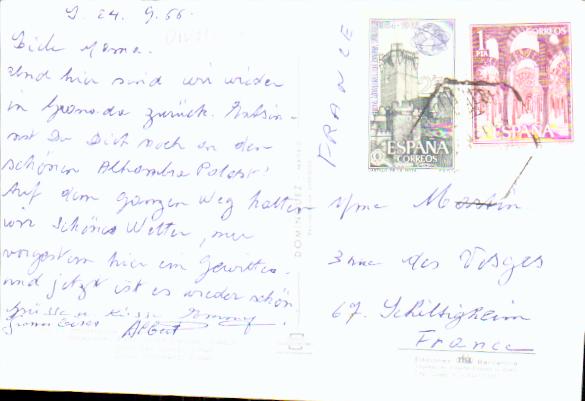 24. 9. 66.
Dich Mama.
Und hier sind wir wieder
in Granada zurück. Entsin-
nst Du Dich noch an den
schönen Alhambra Palast?
Auf dem ganzen Weg hatten
wir schönes Wetter, nur
vorgestern hier ein Gewitter.
und jetzt ist es wieder schön
Albert
FRANCE
ESPAÑA
CORREOS
1 PTA
CORREOS
ESPAÑA
Mme Martin
3 rue des Vosges
67. Schiltigheim
France
DOMINGUEZ